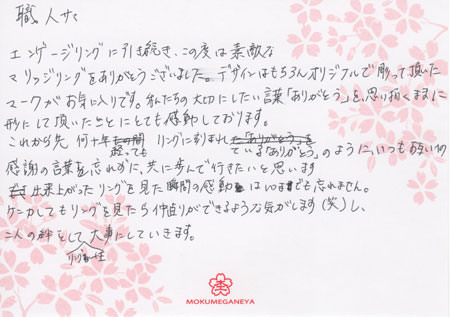 職人サマ
エンゲージリングに引き続き、この度は素敵な
マリッジリングをありがとうございました。デザインはもちろんオリジナルで彫って頂いた
マークがお気に入りです。私たちの大切にしたい言葉「ありがとう」を、思い描くままに
形にして頂いたことにとても感動しております。
これから先 何十年経っても リングに刻まれている「ありがとう」のように、いつもお互いの
感謝の言葉を忘れずに、共に歩んで行きたいと思います
出来上がったリングを見た瞬間の感動はいまでも忘れません。
ケンカしてもリングを見たら仲直りができるような気がします(笑)し、
二人の絆として大事にしていきます。
MOKUMEGANEYA